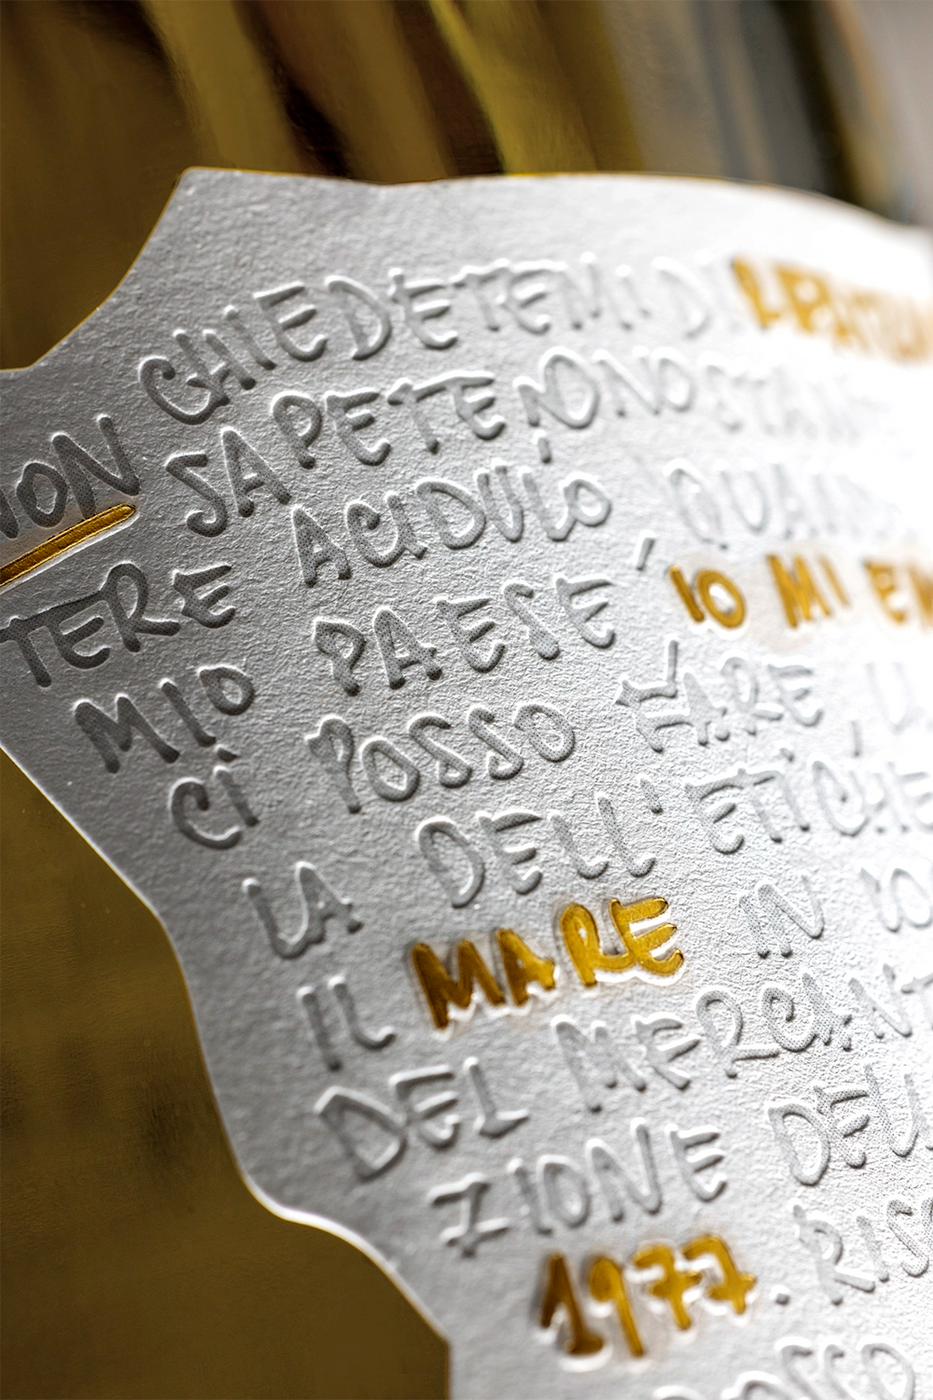 NON CHIEDETEMI DI
SAPETE, NONOSTAN
TERE ACIDULO QUAN
MIO PAESE, IO MI EM
CI POSSO FARE, L
LA DELL'ETICHE
IL MARE IN
DEL MERCANT
ZIONE DELL
1977. RIS
OSSO